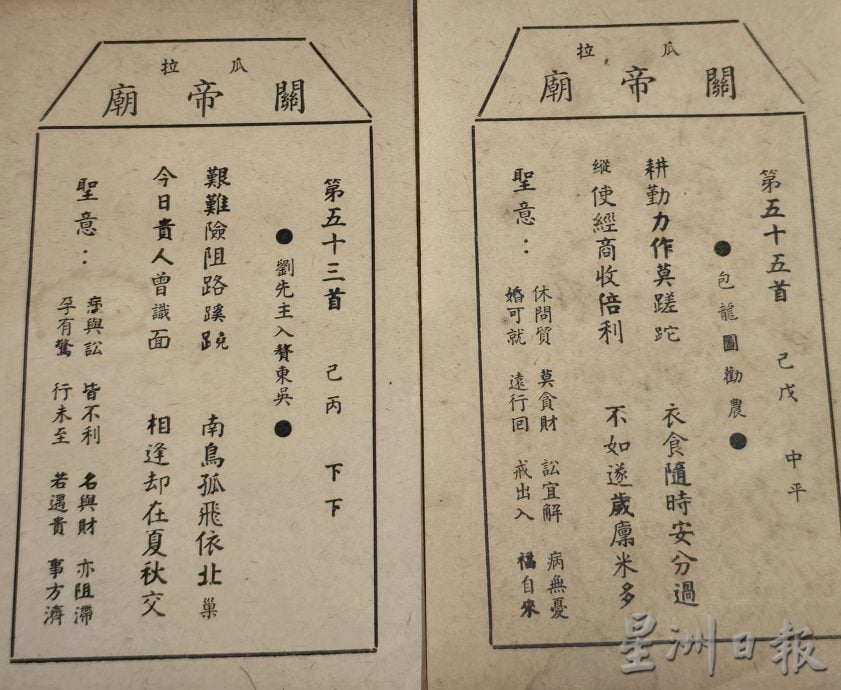 瓜拉
關帝廟
第五十三首 己丙 下下
●劉先主入贅東吳●
艱難險阻路蹊蹺 南鳥孤飛依北巢
今日貴人曾識面 相逢却在夏秋交
聖意：
病與訟 皆不利 名與財 亦阻滯
孕有驚 行未至 若遇貴 事方濟
瓜拉
關帝廟
第五十五首 己戊 中平
●包龍圖勸農●
耕勤力作莫蹉跎 衣食隨時安分過
縱使經商收倍利 不如遂歲廩米多
聖意：
休問質 莫貪財 訟宜解 病無憂
婚可就 遠行回 戒出入 福自來
星洲日報